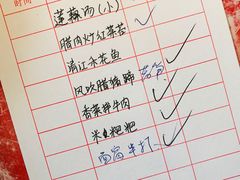 时间
莲藕汤(小)
腊肉炒红菜苔
清江水花鱼
风吹腊猪蹄
香菜拌牛肉
米粑粑
西宫半打